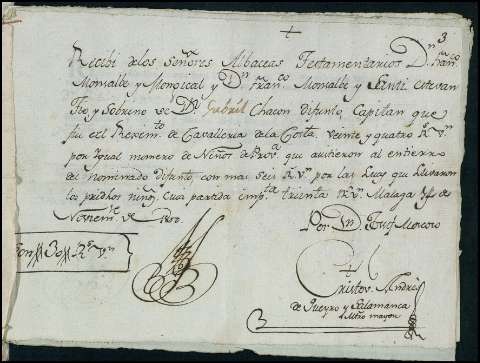 3.
Recibi de los señres Albaceas Testamentarios Dn Franco
Monsalbe y Dn Franco Monsalbe y Santi estevan
tio y Sobrino de Dn Gabriel Chacon difunto, Capitan que
fue del Reximto de Cavalleria de la Costa. Veinte y quatro Rs Vn
por igual numero de Niños de Prova que asistieron al entierro
del nominado difunto, con mas seis Rs Vn por las Luzes que llevaron
los pridhos niños, cuia partida impta treinta Rs Vn Malaga y de
Noviembe de
Son 30 Rs Vn
Por Dn Josef Moscoso
Cristov. Andre
de Queyro y Salamanca
Mtro mayor